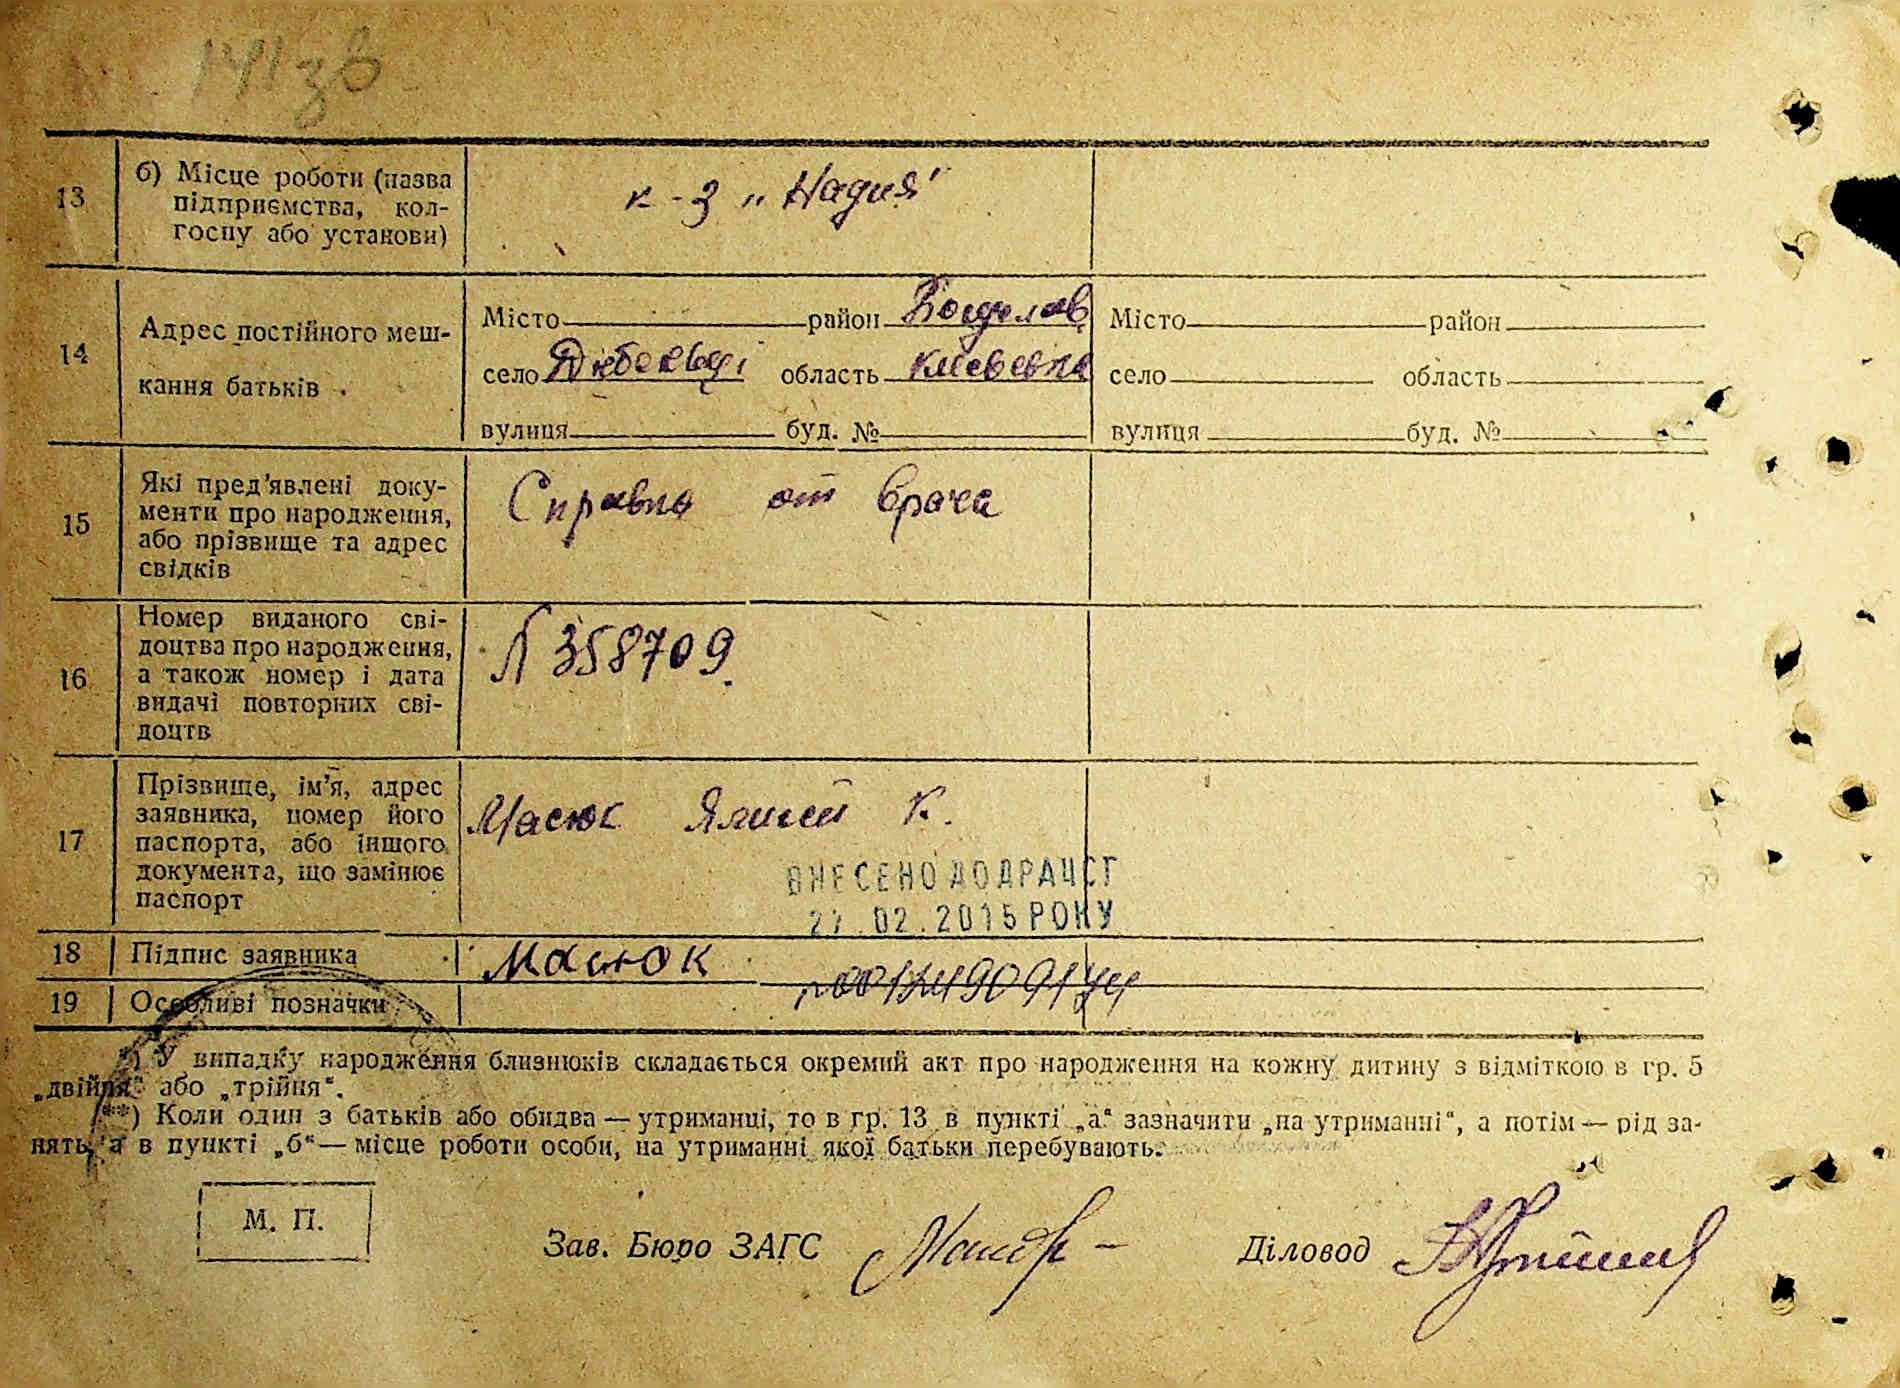 141 зв
13
б) Місце роботи (назва
підприємства, кол-
госпу або установи)
к-з „Надия"
14
Адрес постійного меш-
кання батьків
Місто район Богуслав
село Дибенці область Киевска
вулиця буд. №
Місто район
село область
вулиця буд. №
15
Які пред’явлені доку-
менти про народження,
або прізвище та адрес
свідків
Справка от врача
16
Номер виданого сві-
доцтва про народження,
а також номер і дата
видачі повторних сві-
доцтв
358709
17
Прізвище, ім’я, адрес
заявника, номер його
паспорта, або іншого
документа, що замінює
паспорт
Масюк К.
ВНЕСЕНО ДО ДРАЦСГ
27.02.2015 РОКУ
18
Підпис заявника
Масюк
19
Особливі позначки
*) У випадку народження близнюків складається окремий акт про народження на кожну дитину з відміткою в гр. 5
„двійня“ або „трійня“.
**) Коли один з батьків або обидва — утриманці, то в гр. 13 в пункті „а“ зазначити „на утриманні“, а потім — рід за-
нять, а в пункті „б“ — місце роботи особи, на утриманні якої батьки перебувають.
М. П.
Зав. Бюро ЗАГС
Діловод